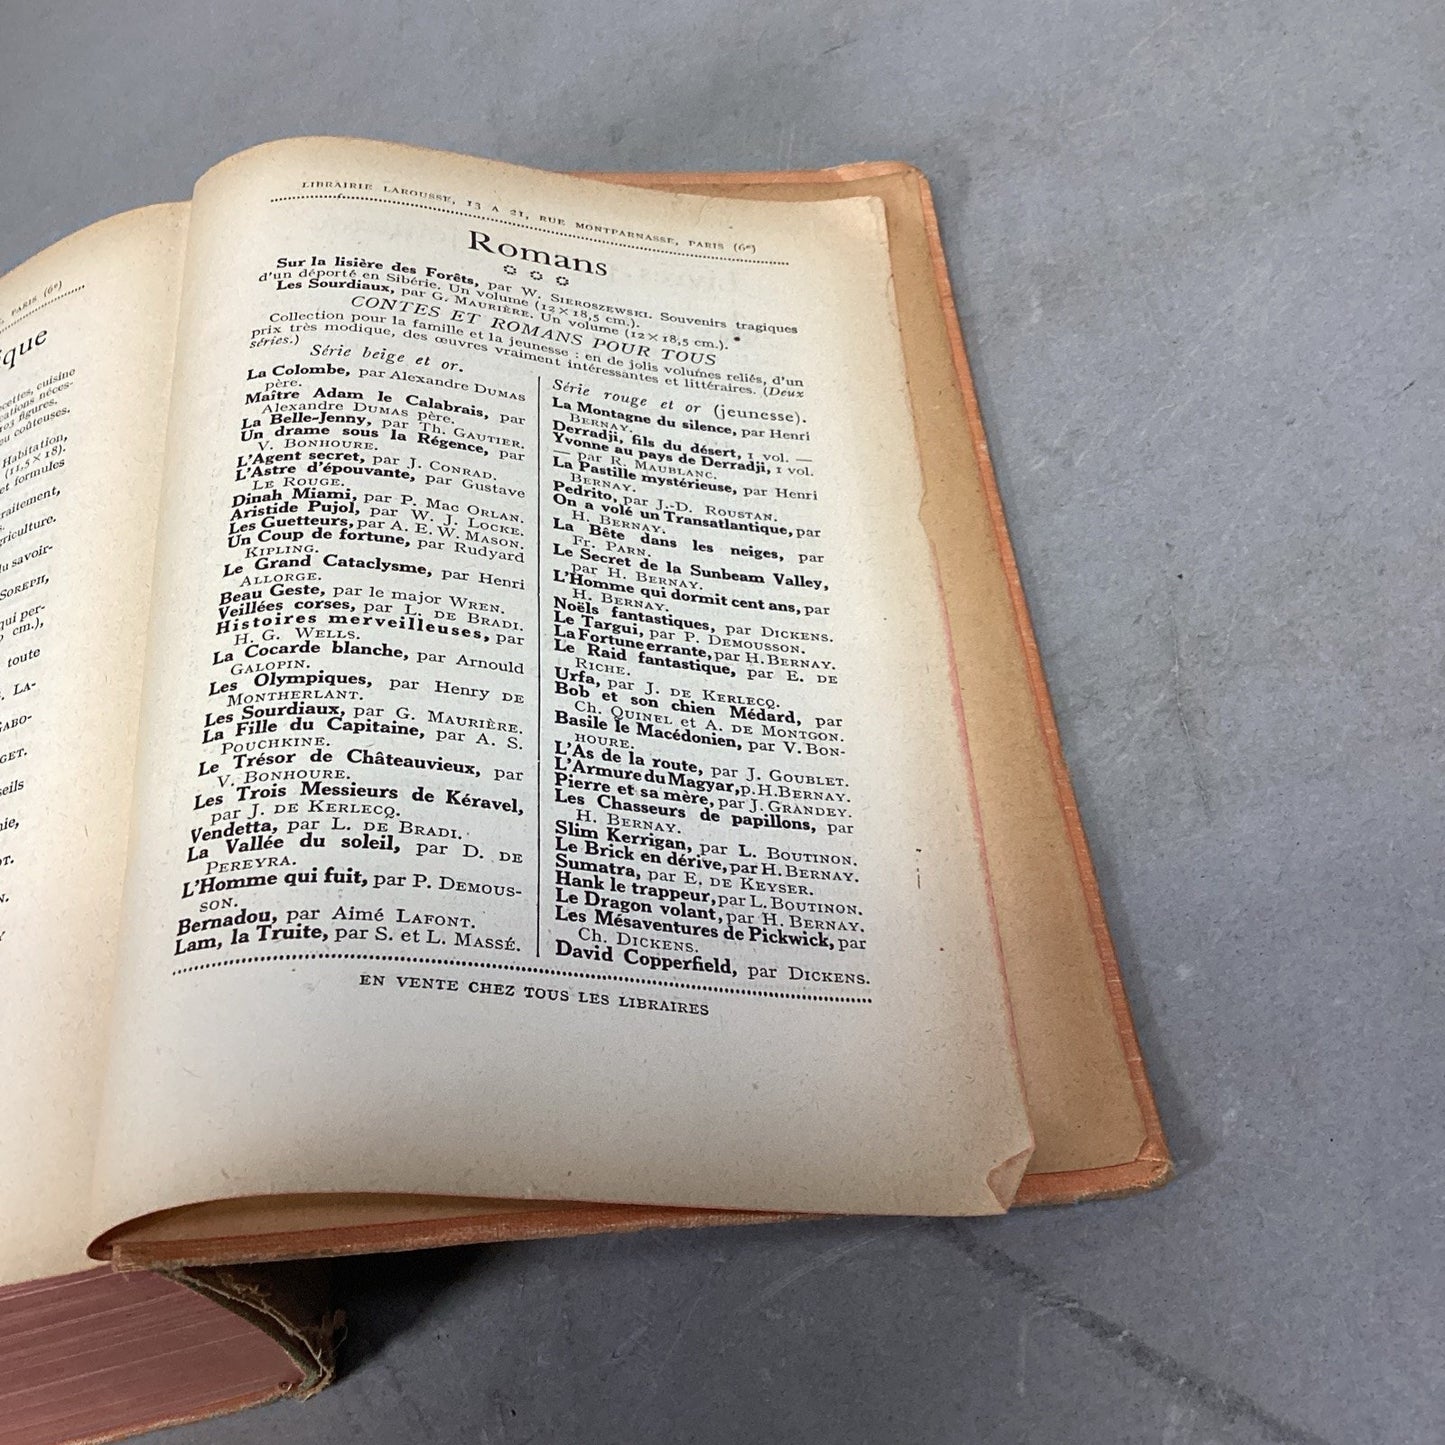 PARIS (6e)
ique
ecettes, cuisine
ations néces-
103 figures.
eu coûteuses.
Habitation,
(11,5 × 18).
et formules
raitement,
griculture.
du savoir-
SOREPH,
qui per-
cm.),
toute
LA-
GABO-
GET.
seils
nie,
OT.
N.
Y
LIBRAIRIE LAROUSSE, 13 A 21, RUE MONTPARNASSE, PARIS (6e)
Romans
Sur la lisière des Forêts, par W. SIEROSZEWSKI. Souvenirs tragiques
d'un déporté en Sibérie. Un volume (12 × 18,5 cm.).
Les Sourdiaux, par G. MAURIÈRE. Un volume (12 × 18,5 cm.).
CONTES ET ROMANS POUR TOUS
Collection pour la famille et la jeunesse : en de jolis volumes reliés, d'un
prix très modique, des œuvres vraiment intéressantes et littéraires. (Deux
séries.)
Série beige et or.
La Colombe, par Alexandre DUMAS
père.
Maître Adam le Calabrais, par
Alexandre DUMAS père.
La Belle-Jenny, par Th. GAUTIER.
Un drame sous la Régence, par
V. BONHOURE.
L'Agent secret, par J. CONRAD.
L'Astre d'épouvante, par Gustave
LE ROUGE.
Dinah Miami, par P. MAC ORLAN.
Aristide Pujol, par W. J. LOCKE.
Les Guetteurs, par A. E. W. MASON.
Un Coup de fortune, par Rudyard
KIPLING.
Le Grand Cataclysme, par Henri
ALLORGE.
Beau Geste, par le major WREN.
Veillées corses, par L. DE BRADI.
Histoires merveilleuses, par
H. G. WELLS.
La Cocarde blanche, par Arnould
GALOPIN.
Les Olympiques, par Henry DE
MONTHERLANT.
Les Sourdiaux, par G. MAURIÈRE.
La Fille du Capitaine, par A. S.
POUCHKINE.
Le Trésor de Châteauvieux, par
V. BONHOURE.
Les Trois Messieurs de Kéravel,
par J. DE KERLECQ.
Vendetta, par L. DE BRADI.
La Vallée du soleil, par D. DE
PEREYRA.
L'Homme qui fuit, par P. DEMOUS-
SON.
Bernadou, par Aimé LAFONT.
Lam, la Truite, par S. et L. MASSÉ.
Série rouge et or (jeunesse).
La Montagne du silence, par Henri
BERNAY.
Derradji, fils du désert, 1 vol. —
Yvonne au pays de Derradji, 1 vol.
— par R. MAUBLANC.
La Pastille mystérieuse, par Henri
BERNAY.
Pedrito, par J.-D. ROUSTAN.
On a volé un Transatlantique, par
H. BERNAY.
La Bête dans les neiges, par
Fr. PARN.
Le Secret de la Sunbeam Valley,
par H. BERNAY.
L'Homme qui dormit cent ans, par
H. BERNAY.
Noëls fantastiques, par DICKENS.
Le Targui, par P. DEMOUSSON.
La Fortune errante, par H. BERNAY.
Le Raid fantastique, par E. DE
RICHE.
Urfa, par J. DE KERLECQ.
Bob et son chien Médard, par
Ch. QUINEL et A. DE MONTGON.
Basile le Macédonien, par V. BON-
HOURE.
L'As de la route, par J. GOUBLET.
L'Armure du Magyar, p. H. BERNAY.
Pierre et sa mère, par J. GRANDEY.
Les Chasseurs de papillons, par
H. BERNAY.
Slim Kerrigan, par L. BOUTINON.
Le Brick en dérive, par H. BERNAY.
Sumatra, par E. DE KEYSER.
Hank le trappeur, par L. BOUTINON.
Le Dragon volant, par H. BERNAY.
Les Mésaventures de Pickwick, par
Ch. DICKENS.
David Copperfield, par DICKENS.
EN VENTE CHEZ TOUS LES LIBRAIRES